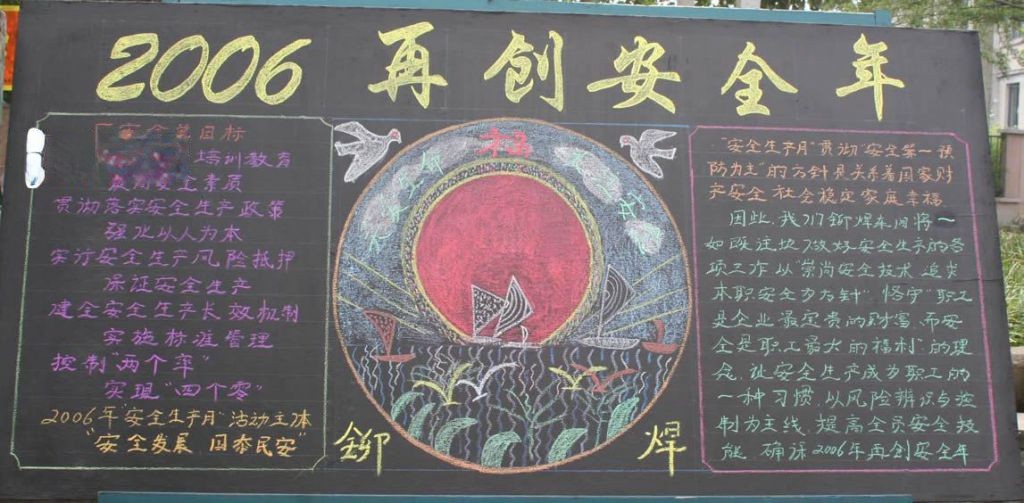 2006 再创安全年
安全总目标
培训教育
安全素质
贯彻落实安全生产政策
强化以人为本
实行安全生产风险抵押
保证安全生产
建全安全生产长效机制
实施标准管理
控制"两个率"
实现"四个零"
2006年"安全生产月"活动主体
"安全发展 国泰民安"
铆
焊
"安全生产月"贯彻"安全第一预
防为主"的方针是关系着国家财
产安全 社会稳定 家庭幸福
因此,我们铆焊车间将一
如既往地做好安全生产的各
项工作 以"崇尚安全技术 追求
本职安全为方针" 恪守"职工
是企业最宝贵的财富,而安
全是职工最大的福利"的理
念,让安全生产成为职工的
一种习惯,以风险辨识与控
制为主线 提高全员安全技
能 确保2006年再创安全年